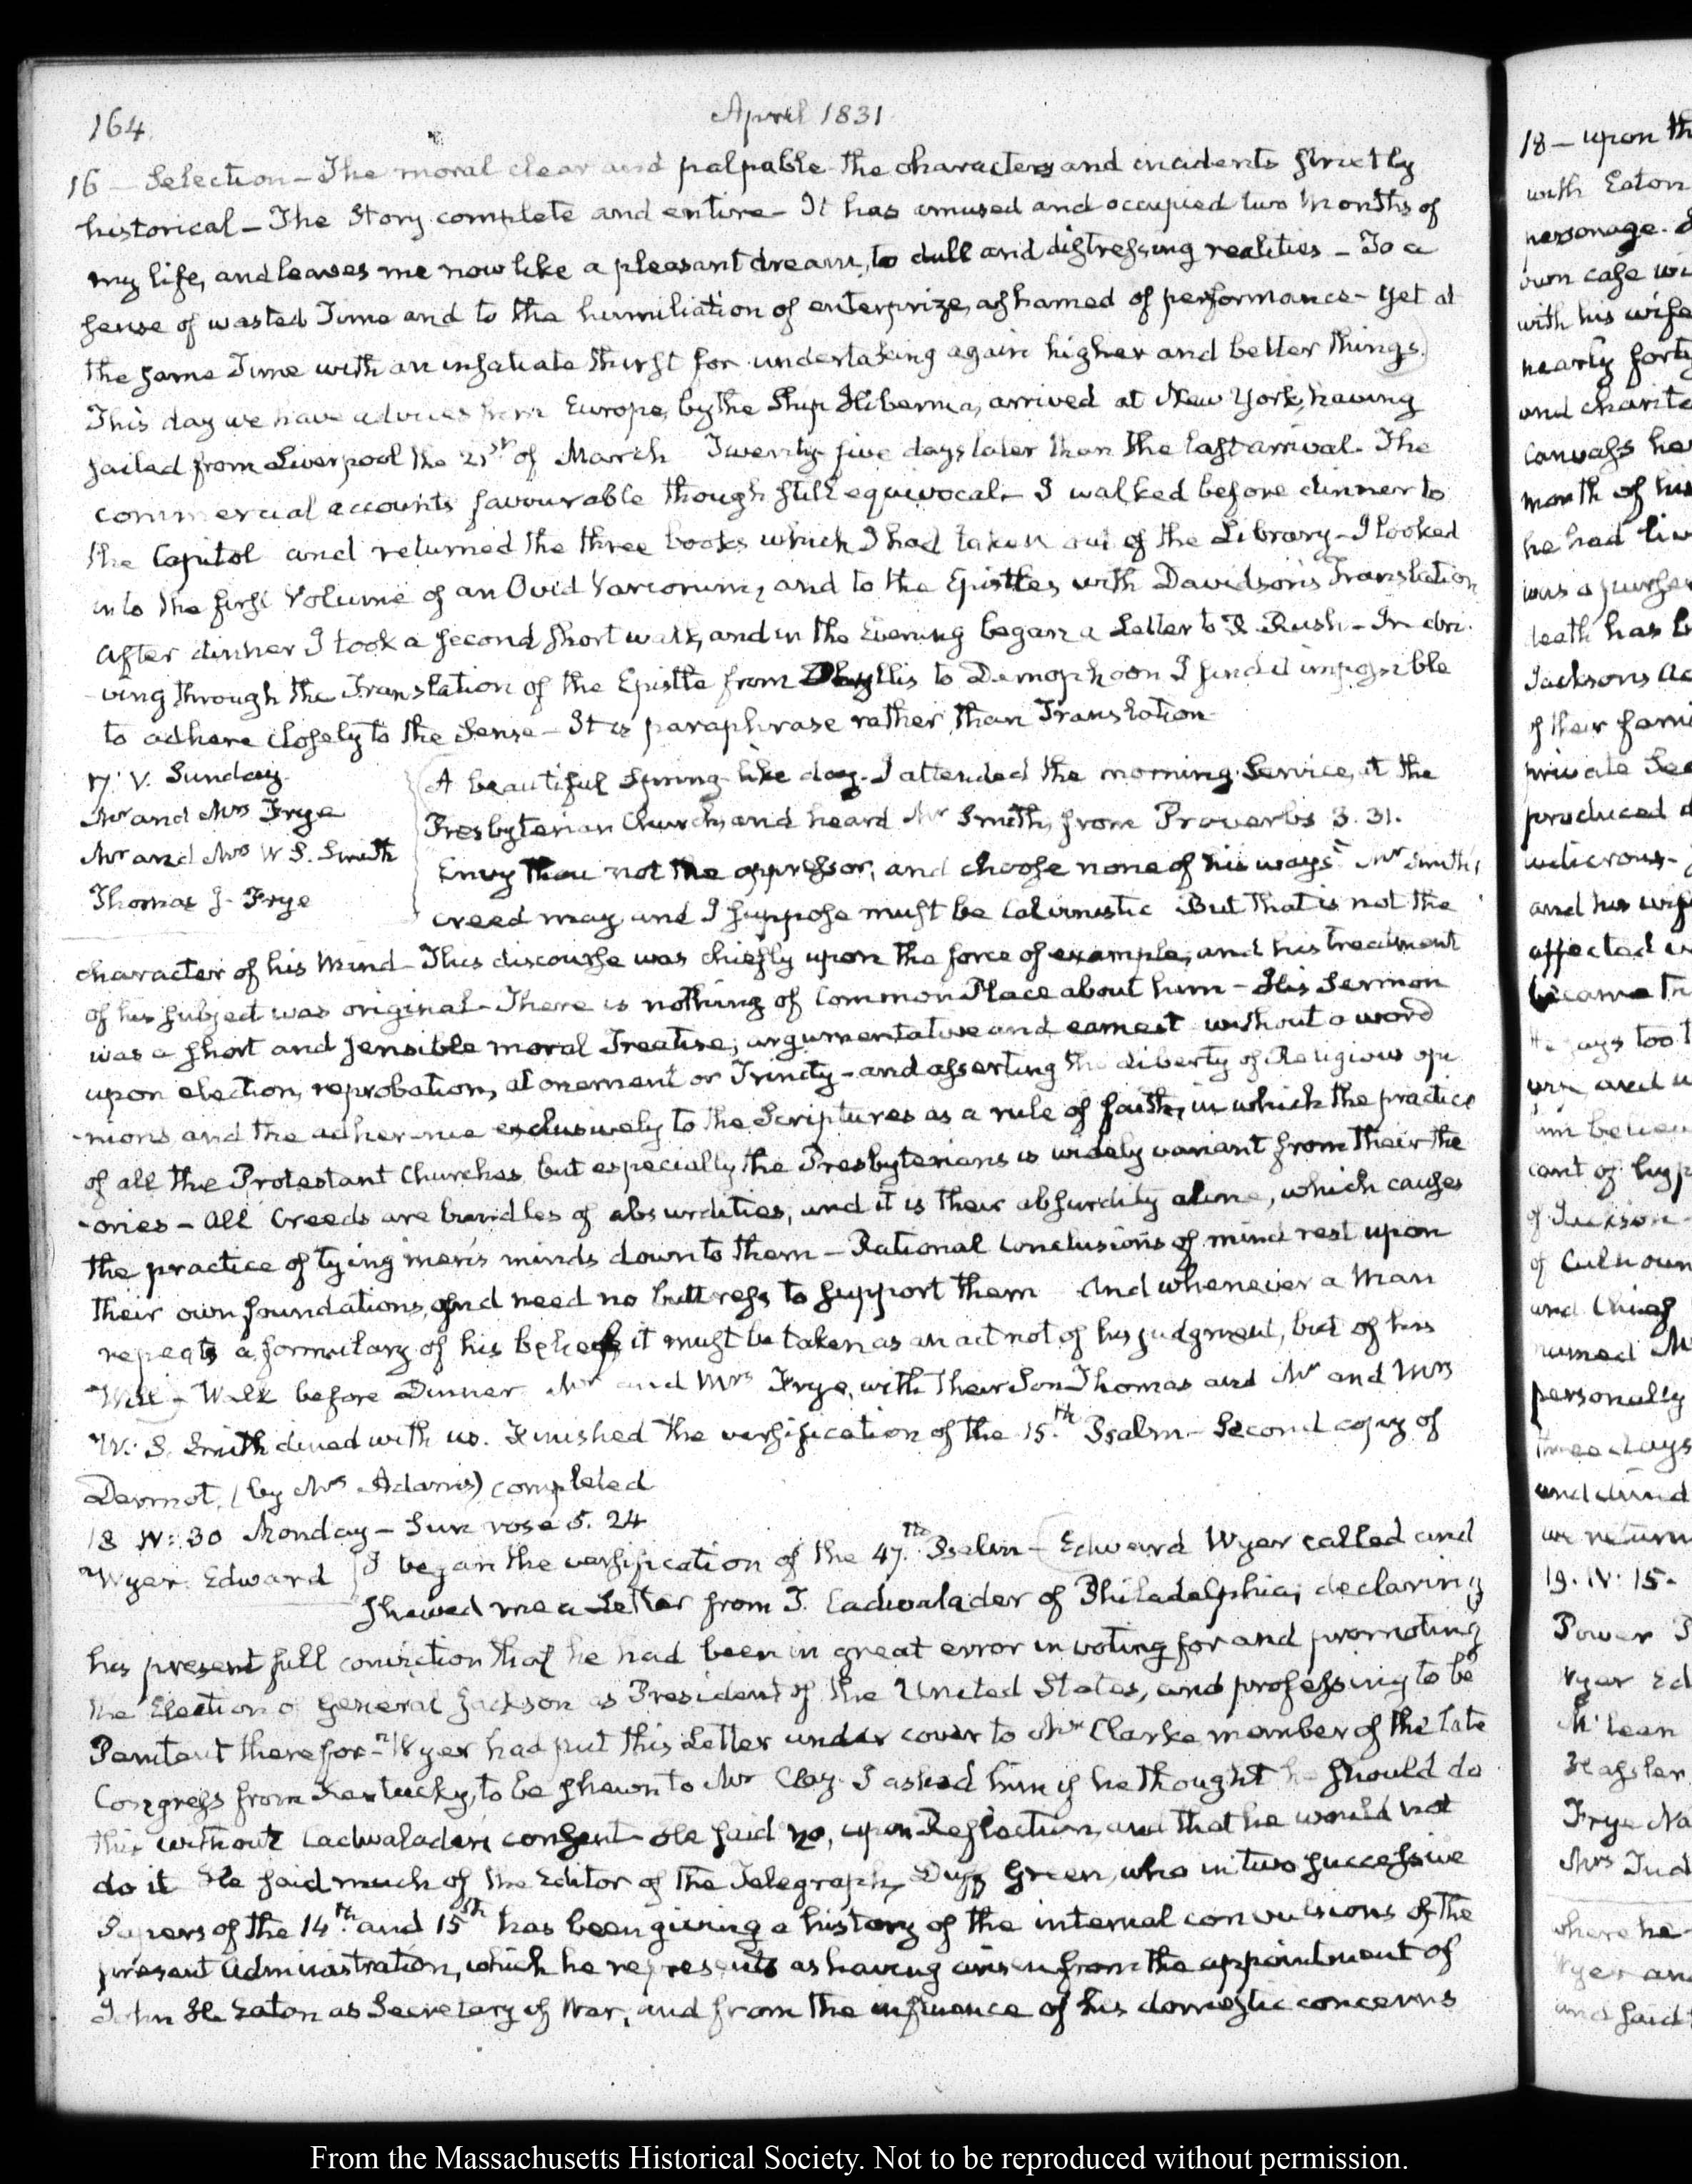 164.
April 1831
16 – Selection – The moral clear and palpable the characters and incidents strictly
historical – The Story complete and entire – It has amused and occupied two Months of
my life, and leaves me now like a pleasant dream, to dull and distressing realities – To a
sense of wasted Time and to the humiliation of enterprize, ashamed of performance – yet at
the same Time with an insatiate thirst for undertaking again higher and better things.)
This day we have advices from Europe, by the Ship Hibernia, arrived at New York, having
sailed from Liverpool the 21st of March Twenty-five days later than the last arrival. The
commercial accounts favourable though still equivocal – I walked before dinner to
the Capitol and returned the three books which I had taken out of the Library – I looked
into the first Volume of an Ovid Variorum, and to the Epistles with Davidson's Translation
After dinner I took a second short walk, and in the Evening began a Letter to R Rush – In dri-
-ving through the Translation of the Epistle from Phyllis to Demophoon I find it impossible
to adhere closely to the Sense – It is paraphrase rather than Translation
17. V. Sunday.
Mr and Mrs Frye
Mr and Mrs W S. Smith
Thomas J. Frye
(A beautiful Spring-like day. I attended the morning Service, at the
Presbyterian Church, and heard Mr Smith, from Proverbs 3. 31.
Envy thou not the oppressor, and choose none of his ways" Mr Smith's
creed may, and I suppose must be Calvinistic But that is not the
character of his Mind – This discourse was chiefly upon the force of example, and his treatment
of his subject was original – There is nothing of Common Place about him – His Sermon
was a short and sensible moral Treatise, argumentative and earnest without a word
upon election, reprobation, atonement or Trinity – and asserting the Liberty of Religious opi
-nions and the adherence exclusively to the Scriptures as a rule of faith, in which the practice
of all the Protestant Churches but especially the Presbyterians is widely variant from their the
-ories – All Creeds are bundles of absurdities, and it is their absurdity alone, which causes
the practice of tying men's minds down to them – Rational Conclusions of mind rest upon
their own foundations, and need no buttress to support them And whenever a Man
repeats a formulary of his belief, it must be taken as an act not of his judgment, but of his
Will –) Walk before Dinner. Mr and Mrs Frye, with their Son Thomas and Mr and Mrs
W. S. Smith dined with us. Finished the versification of the 15th Psalm – Second copy of
Dermot, (by Mrs Adams) completed
18 IV: 30 Monday – Sun rose 5. 24
Wyer. Edward
I began the versification of the 47th Psalm – (Edward Wyer called and
shewed me a Letter from T. Cadwalader of Philadelphia, declaring
his present full conviction that he had been in great error in voting for and promoting
the Election of General Jackson as President of the United States, and professing to be
Penitent therefor – Wyer had put this Letter under cover to Mr Clarke member of the late
Congress from Kentucky, to be shewn to Mr Clay. I asked him if he thought he should do
this without Cadwaladers consent – He said no, upon Reflection, and that he would not
do it He said much of the Editor of the Telegraph, Duff Green, who in two successive
Papers of the 14th and 15th has been giving a history of the internal convulsions of the
present Administration, which he represents as having arisen from the appointment of
John H. Eaton as Secretary of War, and from the influence of his domestic concerns
18 – upon th
with Eaton
personage.
own case
with his wife
nearly forty
and charit
Canvass he
month of his
he had liv
was a purser
death has b
Jacksons Ac
of their fami
private Sec
produced
ludicrous –
and his wife
affected
became
says too
cant of hyp
of Jackson
of Calhoun
and Chief
named M
personally
three days
and dined
we return
19. IV: 15.
Power P
Wyer Ed
McLean
Hassler
Frye Na
Mrs Jud
where he
Wyer an
and said
From the Massachusetts Historical Society. Not to be reproduced without permission.